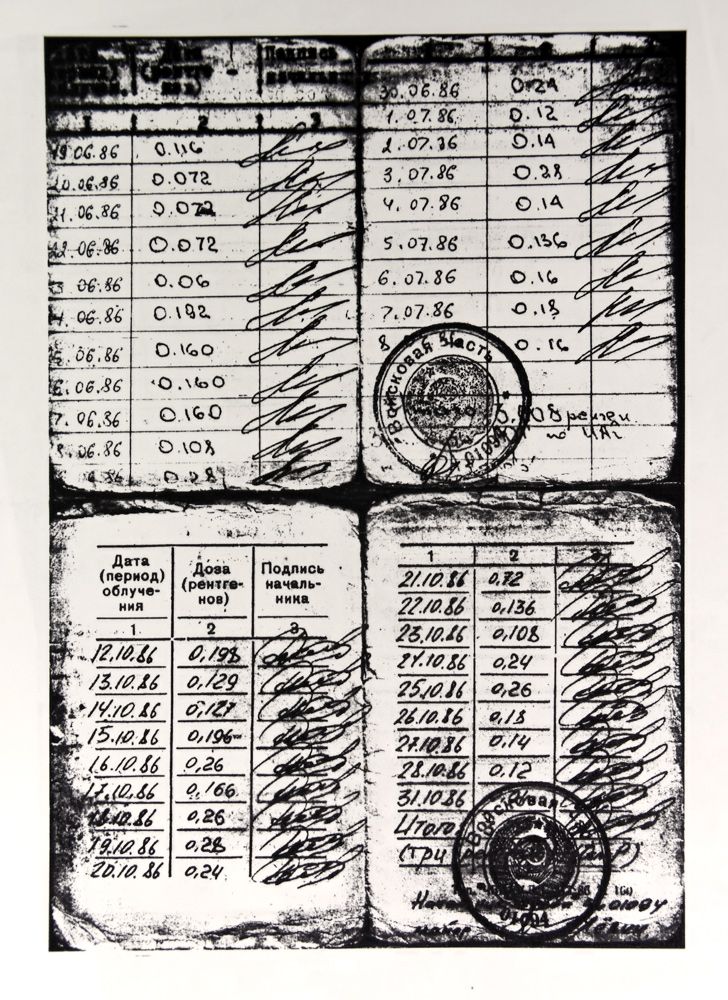 Подпись
1 2 3
19.06.86 0.116
20.06.86 0.072
21.06.86 0.072
22.06.86 0.072
3 06.86 0.06
4.06.86 0.192
5.06.86 0.160
6.06.86 0.160
7.06.86 0.160
8.06.86 0.108
6.86 0.28
30.06.86 0.24
1.07.86 0.12
2.07.86 0.14
3.07.86 0.28
4.07.86 0.14
5.07.86 0.136
6.07.86 0.16
7.07.86 0.18
8 86 0.16
Войсковая часть
01094
Дата (период) облуче- ния
Доза (рентге- нов)
Подпись началь- ника
1 2 3
12.10.86 0,198
13.10.86 0,129
14.10.86 0,127
15.10.86 0,196
16.10.86 0,26
17.10.86 0,166
18.10.86 0,26
19.10.86 0,28
20.10.86 0,24
1 2 3
21.10.86 0,72
22.10.86 0,136
23.10.86 0,108
24.10.86 0,24
25.10.86 0,26
26.10.86 0,18
27.10.86 0,14
28.10.86 0,12
31.10.86
Итого
(три
Войсковая
01094